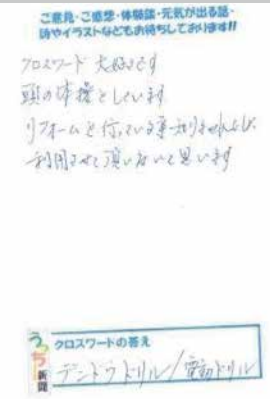 ご意見・ご感想・体験談・元気が出る話・
詩やイラストなどもお待ちしております!!
クロスワード 大好きです
頭の体操としています
リフォームを行っている事 知りませんでした
利用させて頂いたいと思います
うっちー新聞
クロスワードの答え
デンドウドリル/電動ドリル